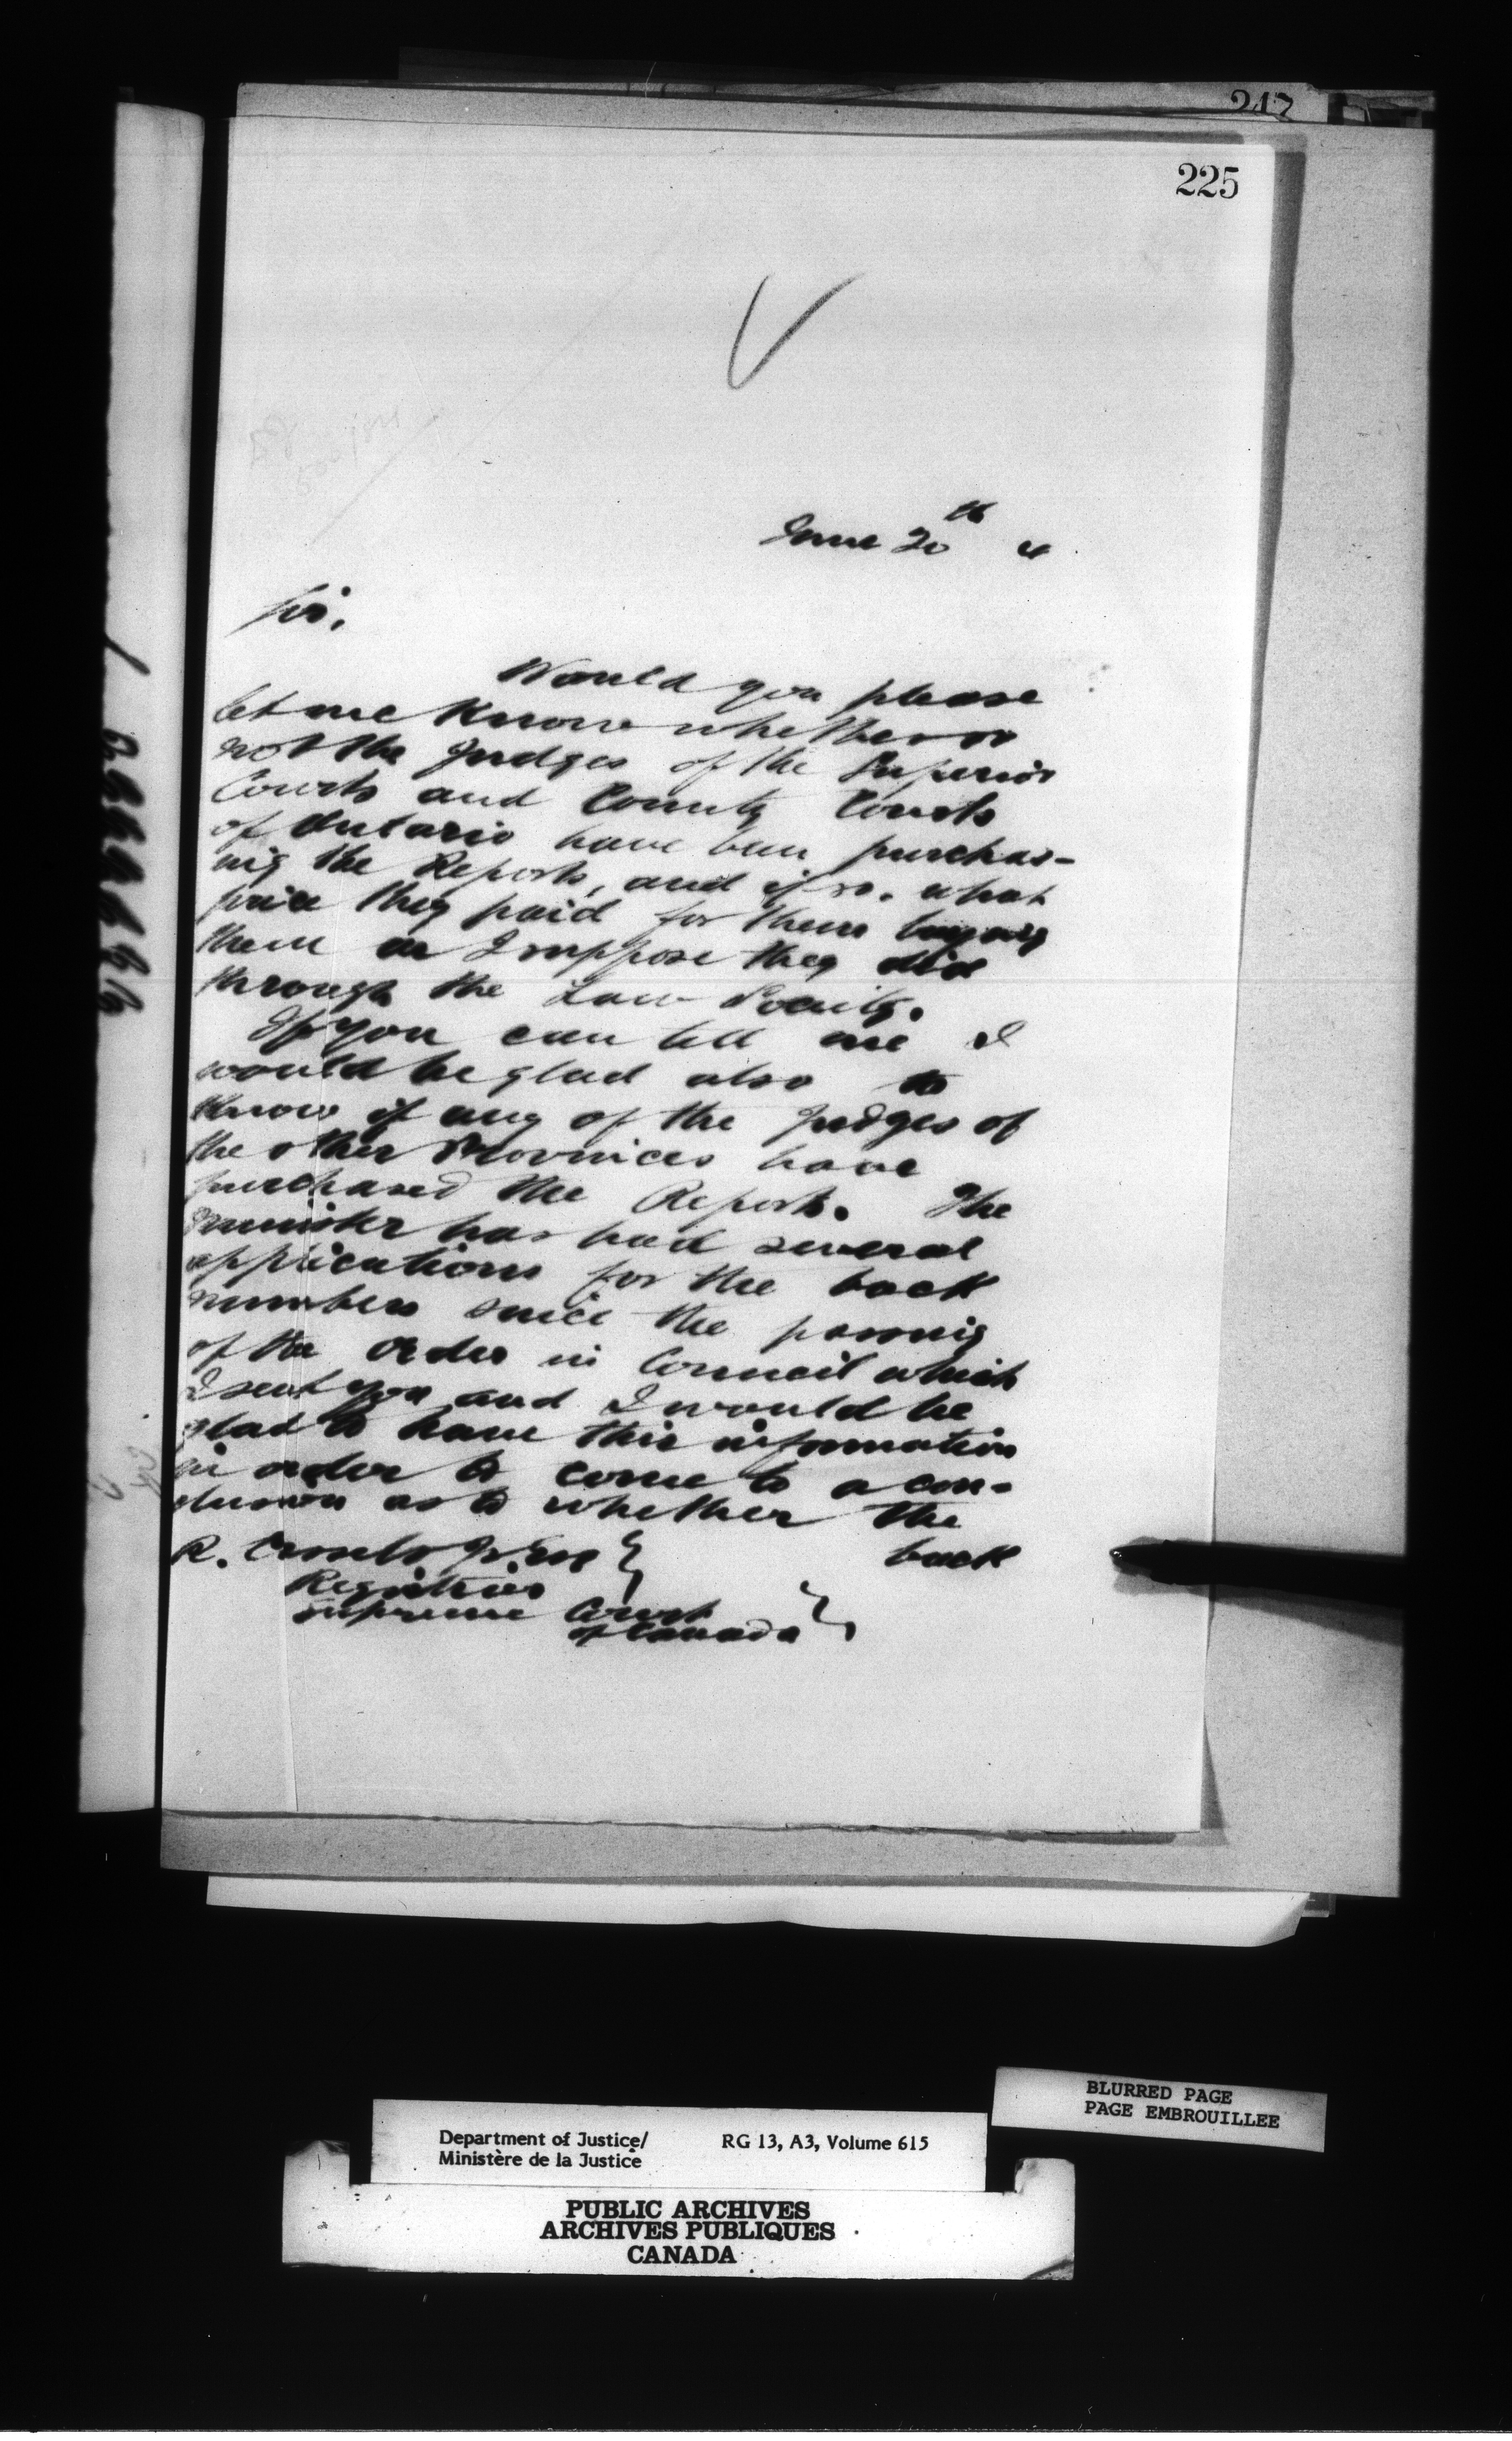 217
225
June 20th 4
Sir,
Would you please
let me know whether or
not the Judges of the Superior
Courts and County Courts
of Ontario have been purchas-
ing the Reports, and if so, what
price they paid for them buying
them as I suppose they did
through the Law Society.
If you can tell me I
would be glad also to
know if any of the Judges of
the other Provinces have
purchased the Reports. The
Minister has had several
applications for the back
numbers since the passing
of the Order in Council which
I sent you and I would be
glad to have this information
in order to come to a con-
clusion as to whether the
back
R. Esq
Registrar
Supreme Court
of Canada
BLURRED PAGE
PAGE EMBROUILLEE
Department of Justice/ RG 13, A3, Volume 615
Ministère de la Justice
PUBLIC ARCHIVES
ARCHIVES PUBLIQUES
CANADA